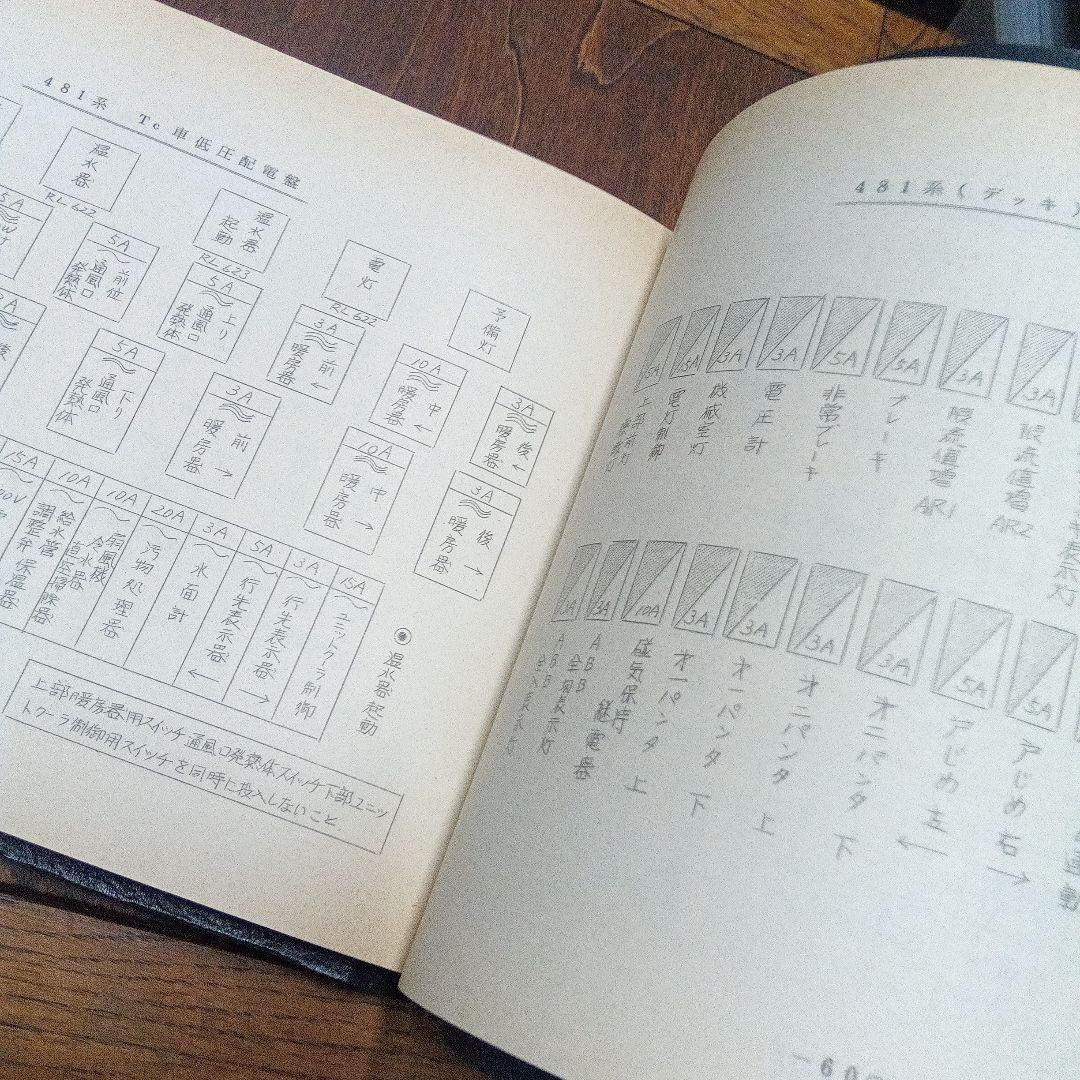 481系
Tc車低圧配電盤
温水器
RL622
温水器起動
RL623
電灯
RL622
予備灯
5A
前位通風口発熱体
5A
上り通風口発熱体
3A
前暖房器←
10A
中暖房器←
3A
後暖房器←
5A
下り通風口発熱体
3A
前暖房器→
10A
中暖房器→
3A
後暖房器→
15A
10A
給水管直空掃除器
調整弁保温器
10A
扇風機
冷水器
20A
汚物処理器
3A
水面計
5A
行先表示器←
3A
行先表示器→
15A
ユニットクーラ制御
温水器起動
上部暖房器用スイッチ通風口発熱体スイッチ下部ユニッ
トクーラ制御用スイッチを同時に投入しないこと.
481系(デッキ)
5A
電灯制御
3A
機械室灯
3A
電圧計
5A
非常ブレーキ
5A
ブレーキ
3A
限流値増
AR1
3A
限流値増
AR2
3A
3A
10A
磁気保持
3A
オ一パンタ上
3A
オ一パンタ下
3A
オ二パンタ上
3A
オ二パンタ下
5A
戸じめ左←
5A
戸じめ右→
－60